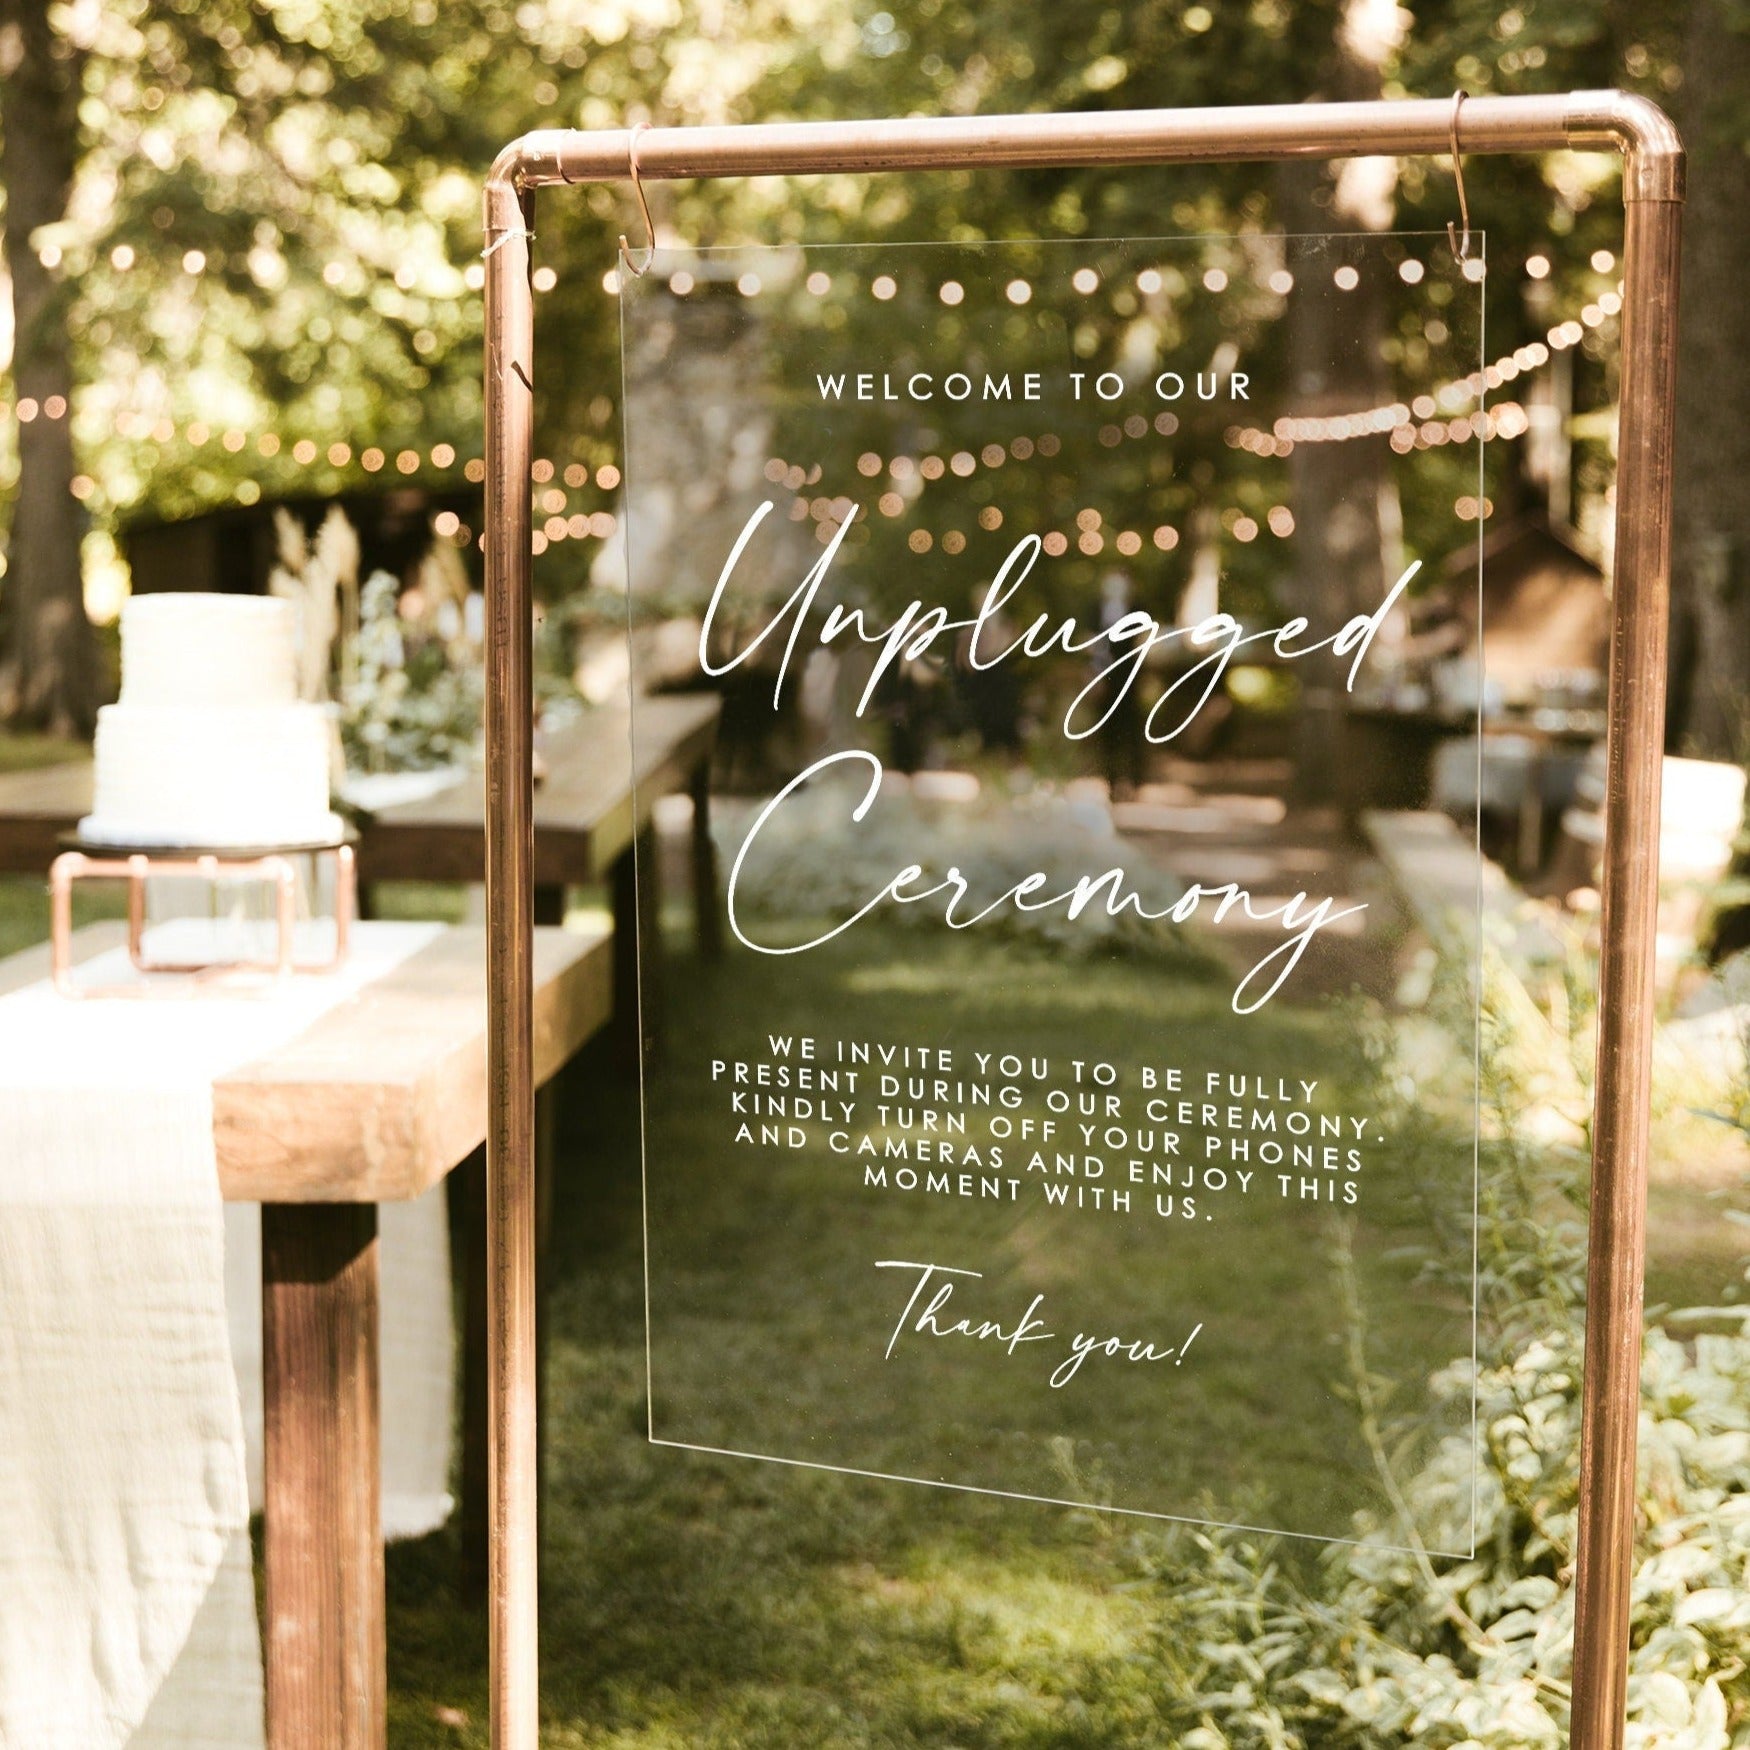 WELCOME TO OUR
Unplugged
Ceremony
WE INVITE YOU TO BE FULLY
PRESENT DURING OUR CEREMONY.
KINDLY TURN OFF YOUR PHONES
AND CAMERAS AND ENJOY THIS
MOMENT WITH US.
Thank you!